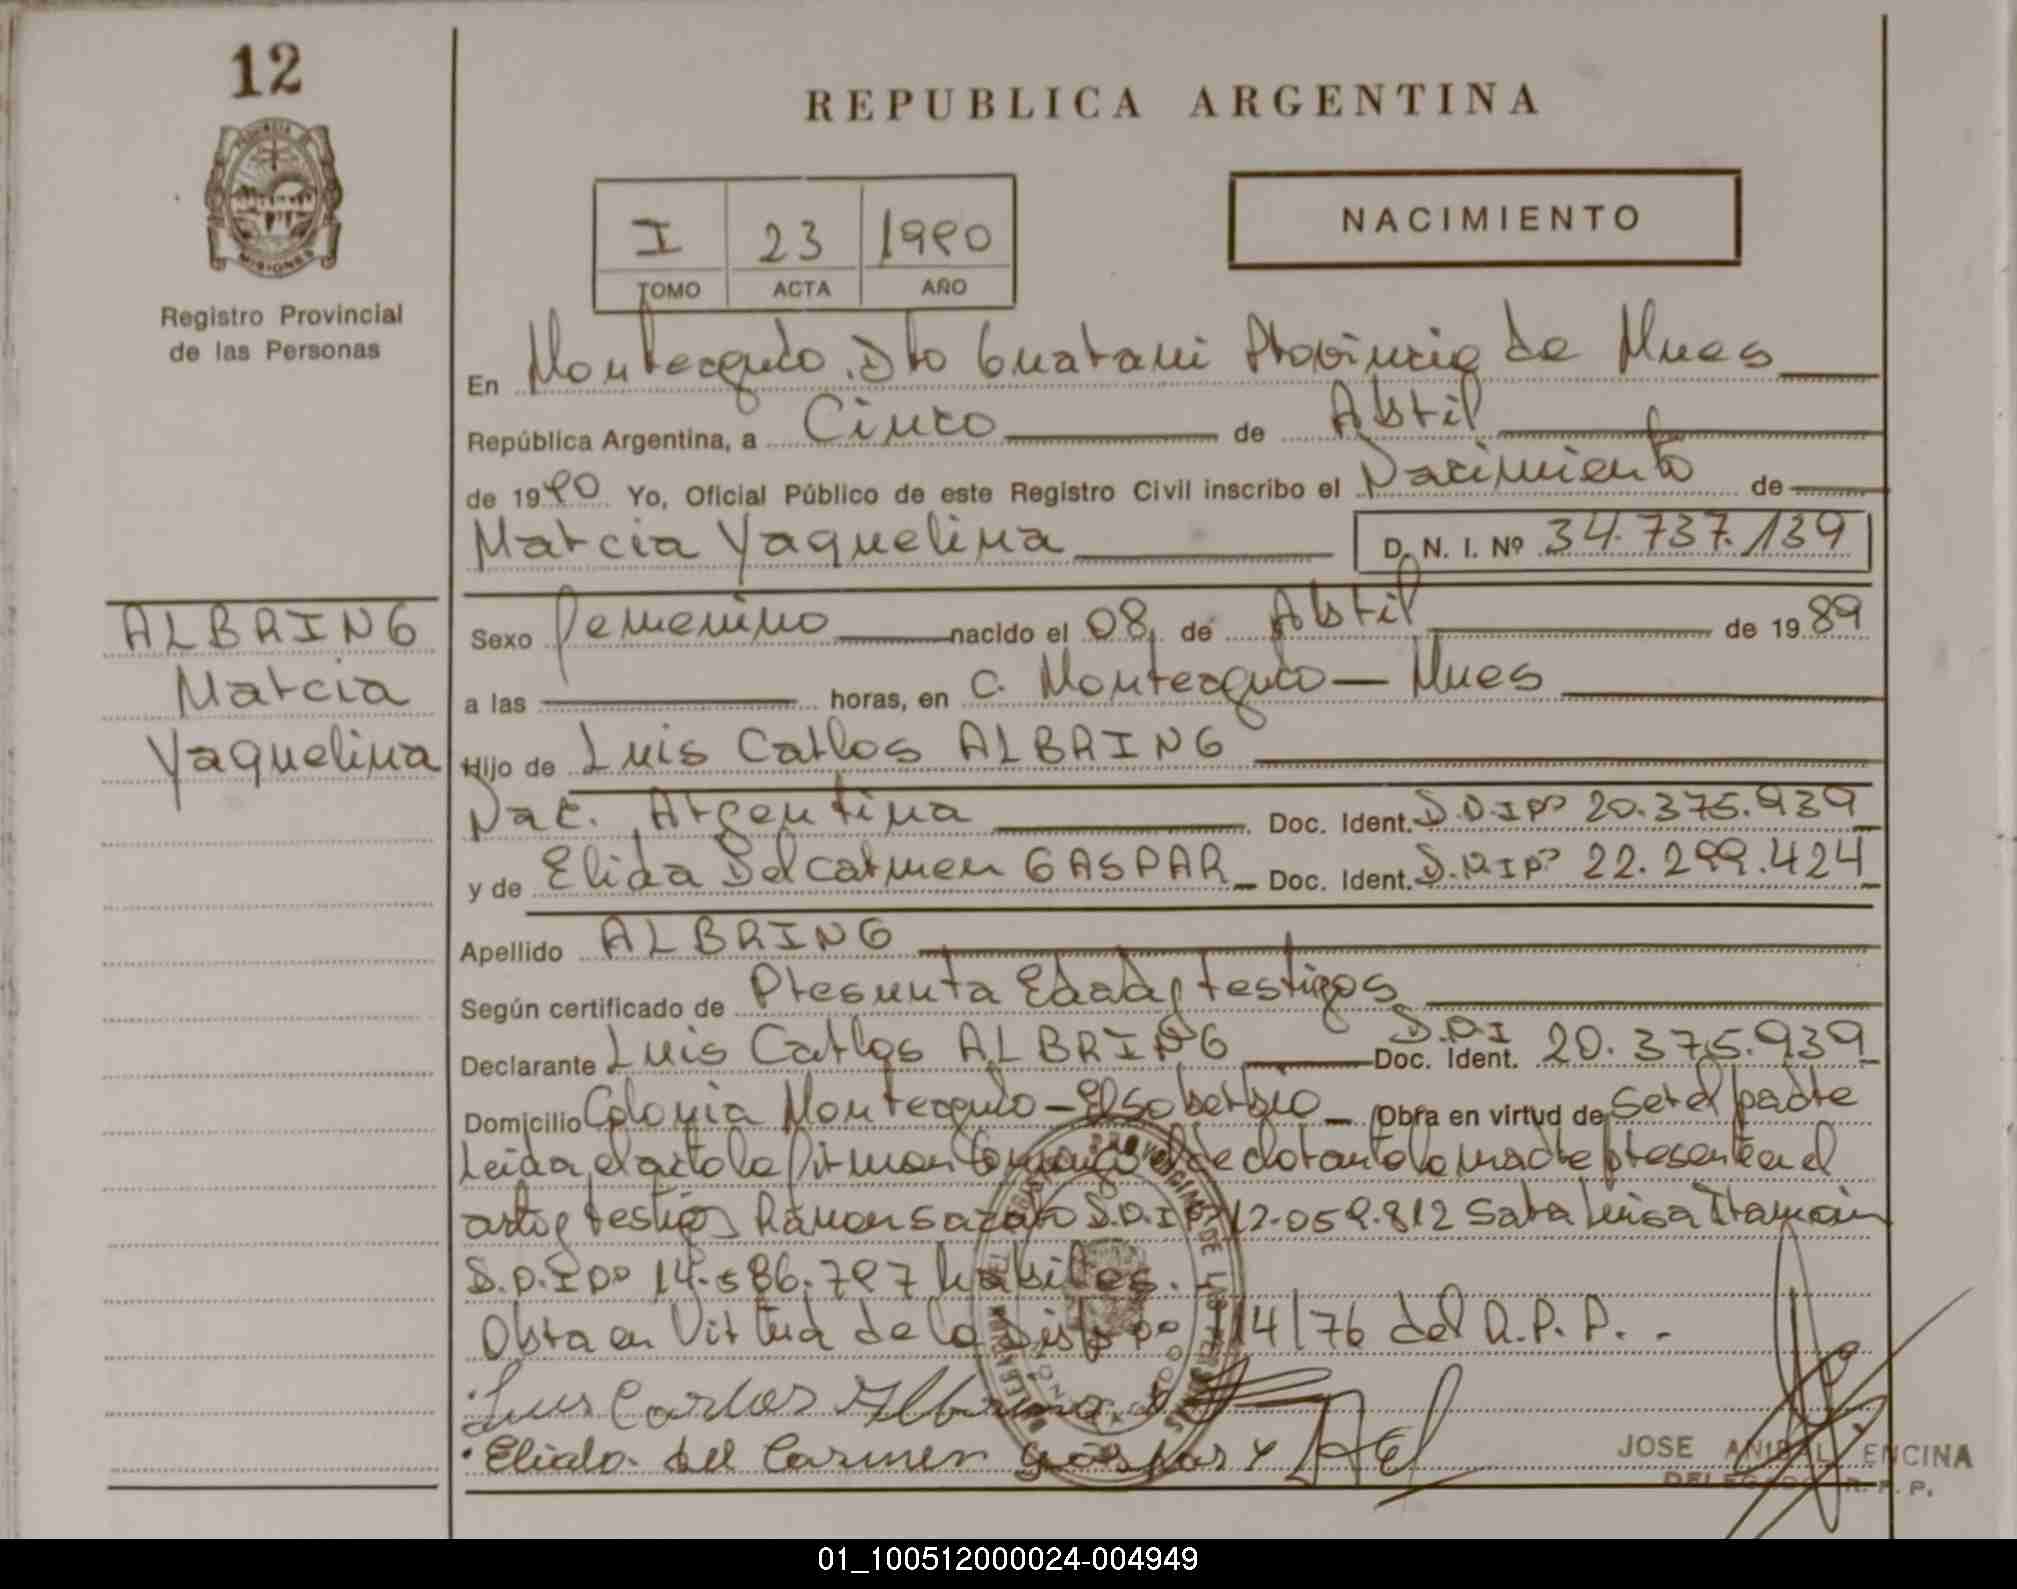 12
REPUBLICA ARGENTINA
PROVINCIA DE
MISIONES
Registro Provincial
de las Personas
I 23 1990
TOMO ACTA AÑO
NACIMIENTO
En Monteagudo. Dto Guarani Provincia de Mnes
República Argentina, a Cinco de Abril
de 1990 Yo, Oficial Público de este Registro Civil inscribo el Nacimiento de
Marcia Yaquelina D. N. I. Nº 34.737.139
ALBRING
Marcia
Yaquelina
Sexo femenino nacido el 08 de Abril de 1989
a las horas, en C. Monteagudo - Mnes
Hijo de Luis Carlos ALBRING
Nac. Argentina Doc. Ident. D.N.I Nº 20.375.939
y de Elida Del Carmen GASPAR Doc. Ident. D.N.I Nº 22.299.424
Apellido ALBRING
Según certificado de Presunta Edad y testigos
Declarante Luis Carlos ALBRING Doc. Ident. D.N.I 20.375.939
Domicilio Colonia Monteagudo - El Soberbio Obra en virtud de ser el padre
Leida el acta la firman conmigo el declarante la madre presente en el
acto y testigos Ramon D.N.I Nº 12.059.812 Sara Luisa
D.N.I Nº 14.586.797 habiles.
Obra en Virtud de la Disp Nº 114/76 del R.P.P. -
Luis Carlos Albring
Elida del Carmen Gaspar
JOSE ANIBAL ENCINA
DELEGADO R. P. P.
01_100512000024-004949